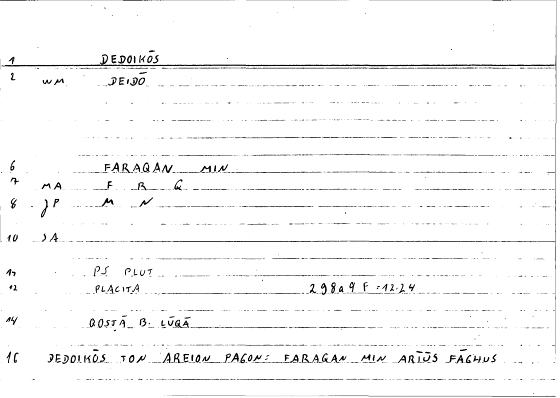 1 DEDOIKŌS
2 WM DEIDŌ
6 FARAQAN MIN
7 MA F R Q
8 JP M N
10 JA
11 PS PLUT
12 PLACITA 298a9 F = 12.24
14 QOSTĀ B. LŪQĀ
16 DEDOIKŌS TON AREION PAGON: FARAQAN MIN ARIŪS FĀGHUS